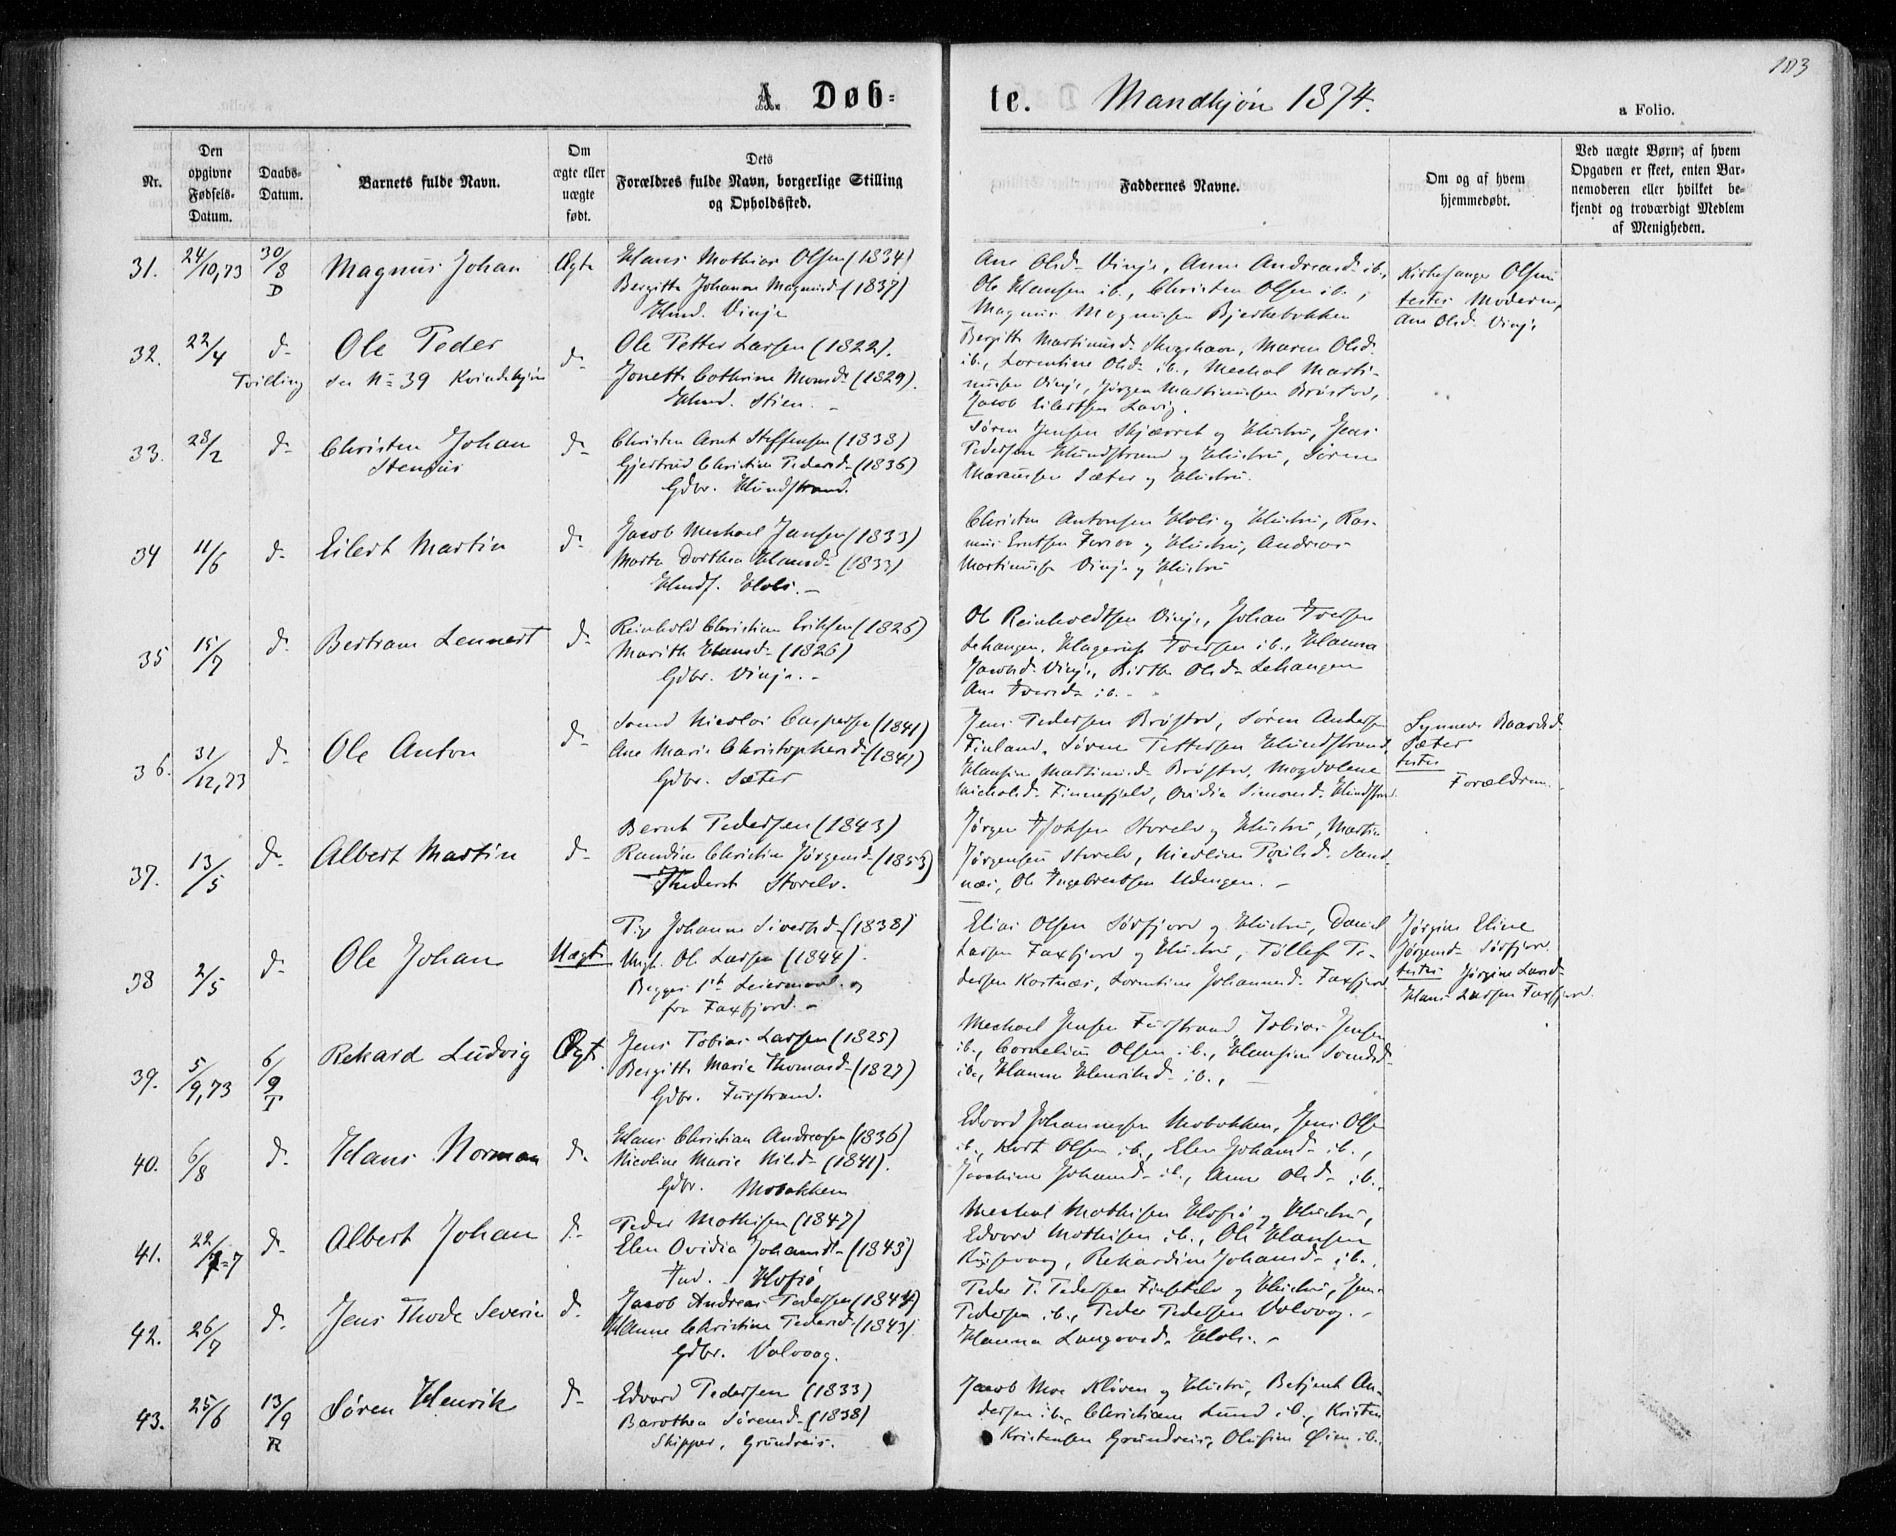 183
A. Døbte. Mandkjøn 1874.
a Folio.
Nr.
Den opgivne Fødsels-Datum.
Daabs-Datum.
Barnets fulde Navn.
Om ægte eller uægte født.
Dets Forældres fulde Navn, borgerlige Stilling og Opholdssted.
Faddernes Navne.
Om og af hvem hjemmedøbt.
Ved uægte Børn; af hvem Opgaven er skeet, enten Barnemoderen eller hvilket bekjendt og troværdigt Medlem af Menigheden.
31. 24/10,73 30/8 D Magnus Johan Ægte
Hans Mathias Olsen (1834)
Bergitte Johanna Magnusd. (1837)
Hmd. Vinje
Ane Olsd. Vinje, Anne Andreasd. ib.,
Ole Hansen ib., Christen Olsen ib.,
Magnus Magnussen Bjerkebakken
Kirkesanger Olsen
testes Moderen,
Ane Olsd. Vinje
32. 22/4 d. Ole Peder d.
Tvilling See No 39 Kvindekjøn
Ole Petter Larsen (1822).
Jonette Cathrine Monsd. (1829).
Hmd. Stien.
Bergitte Martinusd. Skogshavn, Maren Olsd.
ib., Lorentine Olsd. ib., Mechal Marti-
nussen Vinje, Jørgen Martinussen Brøstad,
Jacob Eilertsen Lavig.
33. 28/2 d. Christen Johan d.
Stensius
Christen Arnt Steffensen (1838)
Gjertrud Christine Pedersd. (1836)
Gdbr. Hundstrand.
Søren Jensen Skjærret og Hustru, Jens
Pedersen Hundstrand og Hustru, Søren
Marcussen Sæter og Hustru.
34 11/6 d. Eilert Martin d.
Jacob Mechael Jansen (1833)
Marta Dorthea Hansd. (1833)
Hmd. Hals.
Christen Antonsen Hals og Hustru, Ras-
mus Erntsen Furøa og Hustru, Andreas
Martinussen Vinje og Hustru
35 15/7 d. Bertram Lennert d.
Reinhold Christian Eriksen (1826)
Marith Hansd. (1826)
Gdbr. Vinje.
Ole Reinholdtsen Vinje, Johan Iversen
Lekangen, Hagerup Iversen ib., Hanna
Jacobsd. Vinje, Birthe Olsd. Lekangen
Ane Iversd. ib.
36. 31/12,73 d. Ole Anton d.
Nicolai Caspersen (1841)
Ane Marie Christophersd. (1841)
Gdbr. Sæter
Jens Pedersen Brøstad, Søren Andersen
Finland, Søren Pettersen Hundstrand,
Hansine Martinusd. Brøstad, Magdalene
Michelsd. Finnefjeld, Ovidia Simonsd. Hundstrand.
Synneva Baardsd.
Sæter
testes
Forældrene.
37. 13/5 d. Albert Martin d.
Bernt Pedersen (1843)
Randine Christine Jørgensd. (1853)
Inderst Storelv.
Jørgen Storelv og Hustru, Martin
Jørgensen Storelv, Nicoline Poulsd. Sand-
næs, Ole Ingebretsen Udengen.
38 2/5 d. Ole Johan Uægte
Pige Johanna Sivertsd. (1838)
Ungk. Ole Larsen (1844).
Begges 1ste Leiermaal og
fra Faxfjord.
Elias Olsen Sørfjord og Hustru, Daniel
Larsen Faxfjord og Hustru, Tollef Pe-
dersen Kastnæs, Lorentine Johannesd. Faxfjord
Jørgine Eline
Jørgensd. Sørfjord
testes Jørgine Larsd.
Hans Larsen Faxfjord.
39. 5/9,73 6/9 T Rekard Ludvig Ægte
Jens Tobias Larsen (1825)
Bergitte Marie Thomasd. (1827)
Gdbr. Furstrand.
Mechael Jensen Furstrand, Tobias Jensen
ib., Cornelius Olsen ib., Hansine
ib., Hanna Henriksd. ib.,
40. 6/8 d. Hans Norman d.
Hans Christian Andreasen (1836)
Nicoline Marie Nilsd. (1841).
Gdbr. Mobakken
Edvard Johannessen Mobakken, Jens Olsen
ib., Kort Olsen ib., Elen Johansd. ib.,
Joachine Johansd. ib., Anne Olsd. ib.
41. 22/7 d. Albert Johan d.
Peder Mathisen (1847)
Elen Ovidia Johansd. (1843)
Ind. Hofsø
Mechal Mathisen Hofsø og Hustru,
Edvard Mathisen ib., Ole Hansen
Rekardine Johansd. ib.
42. 26/7 d. Jens Thode Severin d.
Jacob Andreas Pedersen (1844)
Hanna Christine Pedersd. (1843).
Gdbr. Valvaag.
Peder P. Pedersen og Hustru, Jens
Pedersen ib., Peder Pedersen Valvaag.
Hanna Hals.
43. 25/6 13/9 R Søren Henrik d.
Edvard Pedersen (1833)
Barothea Sørensd. (1838)
Skipper, Grundreis.
Jacob Moe Kløven og Hustru, Betjent An-
dersen ib., Christiane Lund ib., Kristen
Kristensen Grundreis, Olufine Øien ib.